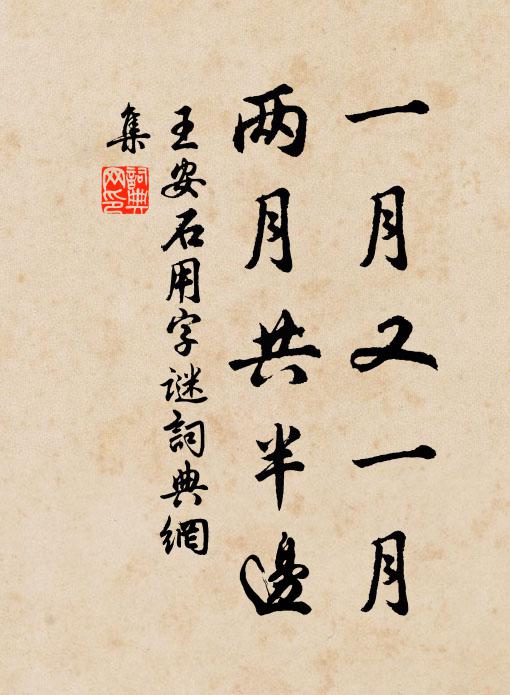 一月又一月
两月共半邊
王安石用字谜詞典網
集
詞典
网印